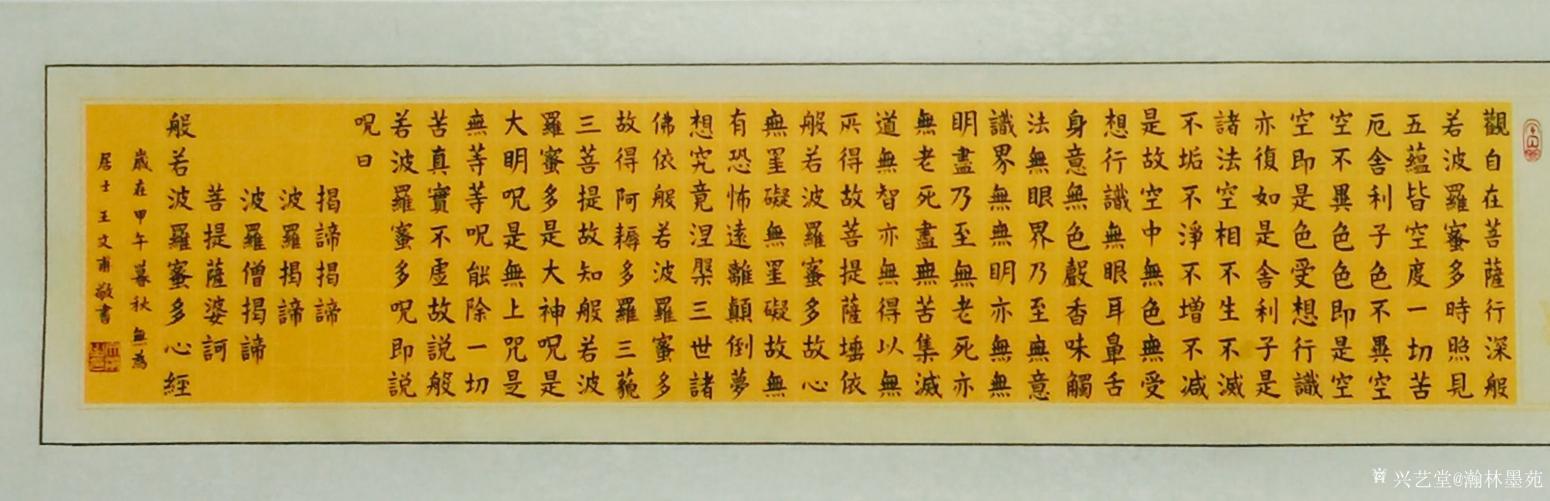 觀自在菩薩行深般
若波羅蜜多時照見
五蘊皆空度一切苦
厄舍利子色不異空
空不異色色即是空
空即是色受想行識
亦復如是舍利子是
諸法空相不生不滅
不垢不淨不增不减
是故空中無色無受
想行識無眼耳鼻舌
身意無色聲香味觸
法無眼界乃至無意
識界無無明亦無無
明盡乃至無老死亦
無老死盡無苦集滅
道無智亦無得以無
所得故菩提薩埵依
般若波羅蜜多故心
無罣礙無罣礙故無
有恐怖遠離顛倒夢
想究竟涅槃三世諸
佛依般若波羅蜜多
故得阿耨多羅三藐
三菩提故知般若波
羅蜜多是大神呪是
大明呪是無上咒是
無等等呪能除一切
苦真實不虛故說般
若波羅蜜多呪即説
呪曰
揭諦揭諦
波羅揭諦
波羅僧揭諦
菩提薩婆訶
般若波羅蜜多心經
歲在甲午暮秋無為
居士王文甫敬書
兴艺堂@瀚林墨苑